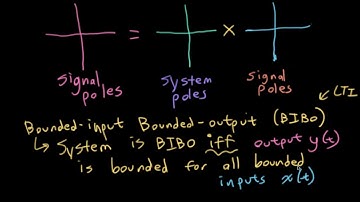 = ×
signal poles
system poles
signal poles
Bounded-input Bounded-output (BIBO)
LTI
↳ System is BIBO iff output y(t)
is bounded for all bounded
inputs x(t)